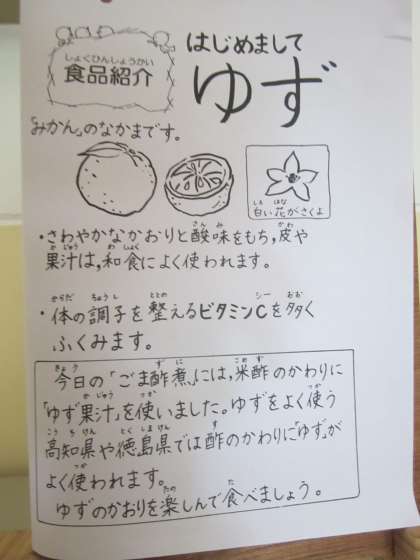 はじめまして
しょくひんしょうかい
食品紹介
ゆず
「みかん」のなかまです。
しろ はな
白い花がさくよ
さんみ かわ
・さわやかなかおりと酸味をもち,皮や
かじゅう わしょく
果汁は,和食によく使われます。
からだ ちょうし ととの シー おお
・体の調子を整えるビタミンCを多く
ふくみます。
きょう ずに こめず
今日の「ごま酢煮」には,米酢のかわりに
かじゅう つか つか
「ゆず果汁」を使いました。ゆずをよく使う
こうちけん とくしまけん す
高知県や徳島県では酢のかわりに「ゆず」が
つか
よく使われます。
たの た
ゆずのかおりを楽しんで食べましょう。